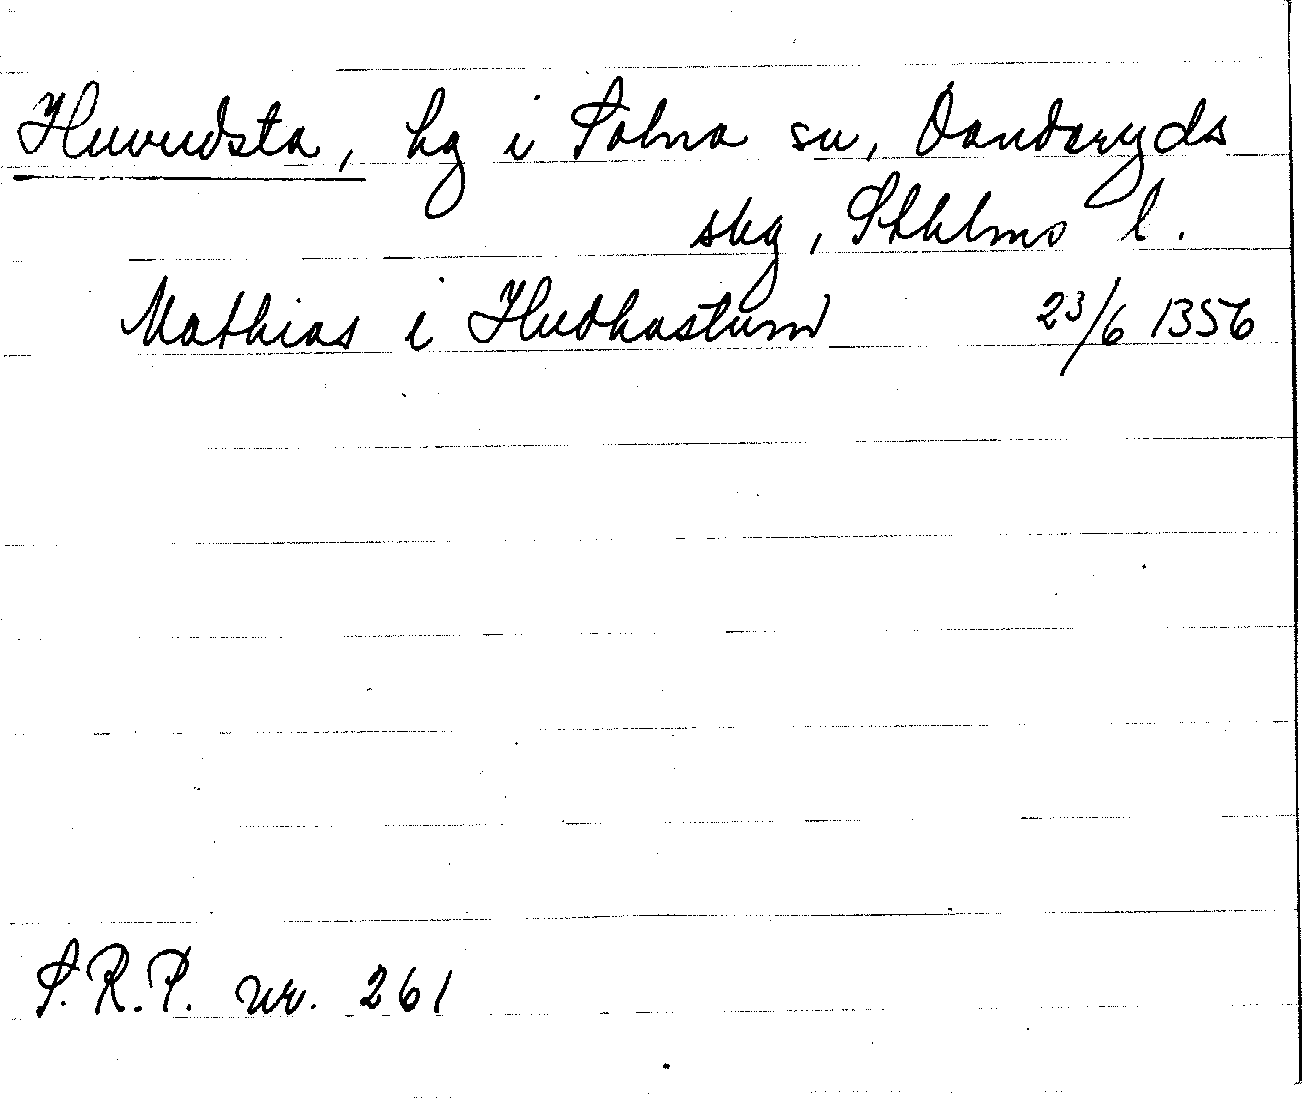 Huvudsta, hg i Solna sn, Danderyds
skg, Sthlms l.
Mathias i Hudhastum 23/6 1356
S.R.P. nr. 261